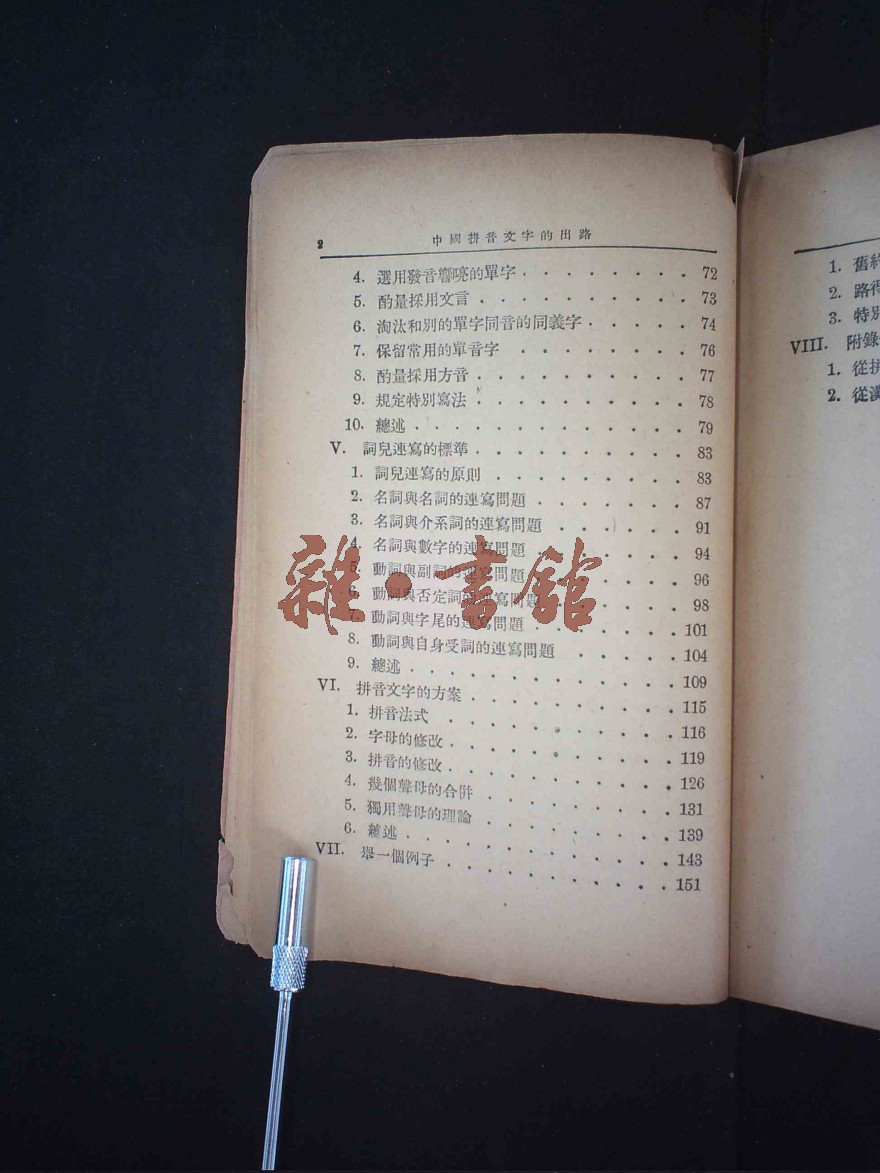 2 中國拼音文字的出路
4. 選用發音響亮的單字 · · · · · · · · 72
5. 酌量採用文言 · · · · · · · · · 73
6. 淘汰和別的單字同音的同義字 · · · · · 74
7. 保留常用的單音字 · · · · · · · · 76
8. 酌量採用方音 · · · · · · · · · 77
9. 規定特別寫法 · · · · · · · · · 78
10. 總述 · · · · · · · · · · · · 79
V. 詞兒連寫的標準 · · · · · · · · · 83
1. 詞兒連寫的原則 · · · · · · · · · 83
2. 名詞與名詞的連寫問題 · · · · · · · 87
3. 名詞與介系詞的連寫問題 · · · · · 91
4. 名詞與數字的連寫問題 · · · · · · 94
5. 動詞與副詞的連寫問題 · · · · · · 96
6. 動詞與否定詞的連寫問題 · · · · · 98
7. 動詞與字尾的連寫問題 · · · · · · 101
8. 動詞與自身受詞的連寫問題 · · · · · 104
9. 總述 · · · · · · · · · · · · 109
VI. 拼音文字的方案 · · · · · · · · · 115
1. 拼音法式 · · · · · · · · · · 116
2. 字母的修改 · · · · · · · · · · 119
3. 拼音的修改 · · · · · · · · · · 126
4. 幾個聲母的合併 · · · · · · · · · 131
5. 獨用聲母的理論 · · · · · · · · · 139
6. 總述 · · · · · · · · · · · · 143
VII. 舉一個例子 · · · · · · · · · · 151
雜·書館
1. 舊約
2. 路得
3. 特別
VIII. 附錄
1. 從拼
2. 從漢